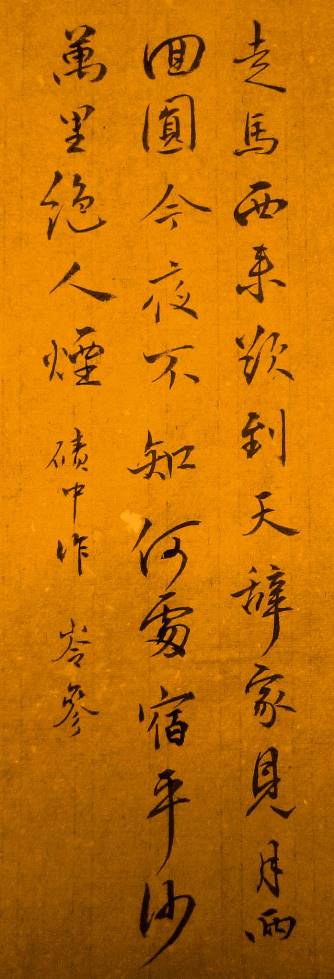 走馬西来欲到天辞家見月兩
回圓今夜不知何處宿平沙
萬里絶人煙 磧中作 岑參